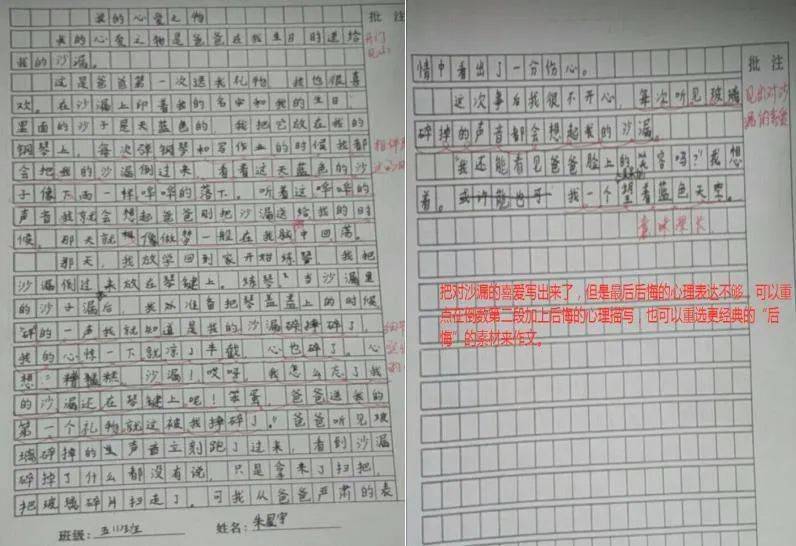 我的心爱之物
批注
我的心爱之物是爸爸在我生日时送给
开门
我的沙漏。
见山
这是爸爸第一次送我礼物，我也很喜
欢。在沙漏上印着我的名字和我的生日，
里面的沙子是天蓝色的，我把它放在我的
钢琴上，每次弹钢琴和写作业的时候我都
会把我的沙漏倒过来，看看这天蓝色的沙
子像下雨一样哗哗的落下。听着这哗哗的
声音我就会想起爸爸刚把沙漏送给我的时
候，那天就像做梦一般在我脑中回荡。
那天，我放学回到家开始练琴，我把
沙漏倒过来放在琴键上。练琴，当沙漏里
的沙子漏后，我水准备把琴盖盖上的时候
砰的一声我就知道是我的沙漏摔碎了，
我的心惊一下就凉了半截，心也碎了。心
想：糟糕，沙漏！哎呀，我怎么忘了我
的沙漏还在琴键上呢！笨蛋，爸爸送我的
第一个礼物就这被我摔碎了。”爸爸听见玻
璃碎掉的声音立刻跑了过来，看到沙漏
碎掉了什么都没有说，只是拿来了扫把，
把玻璃碎片扫走了。可我从爸爸严肃的表
班级：
姓名：朱星宇
批注
情中看出了一分伤心。
这次事后我很不开心，每次听见玻璃
碎掉的声音都会想起我的沙漏。
“我还能看见爸爸脸上的笑容吗？”我想
着。或许能也可 我一个望着蓝色天空。
意味深长
把对沙漏的喜爱写出来了，但是最后后悔的心理表达不够，可以重
点在倒数第二段加上后悔的心理描写，也可以重选更经典的“后
悔”的素材来作文。